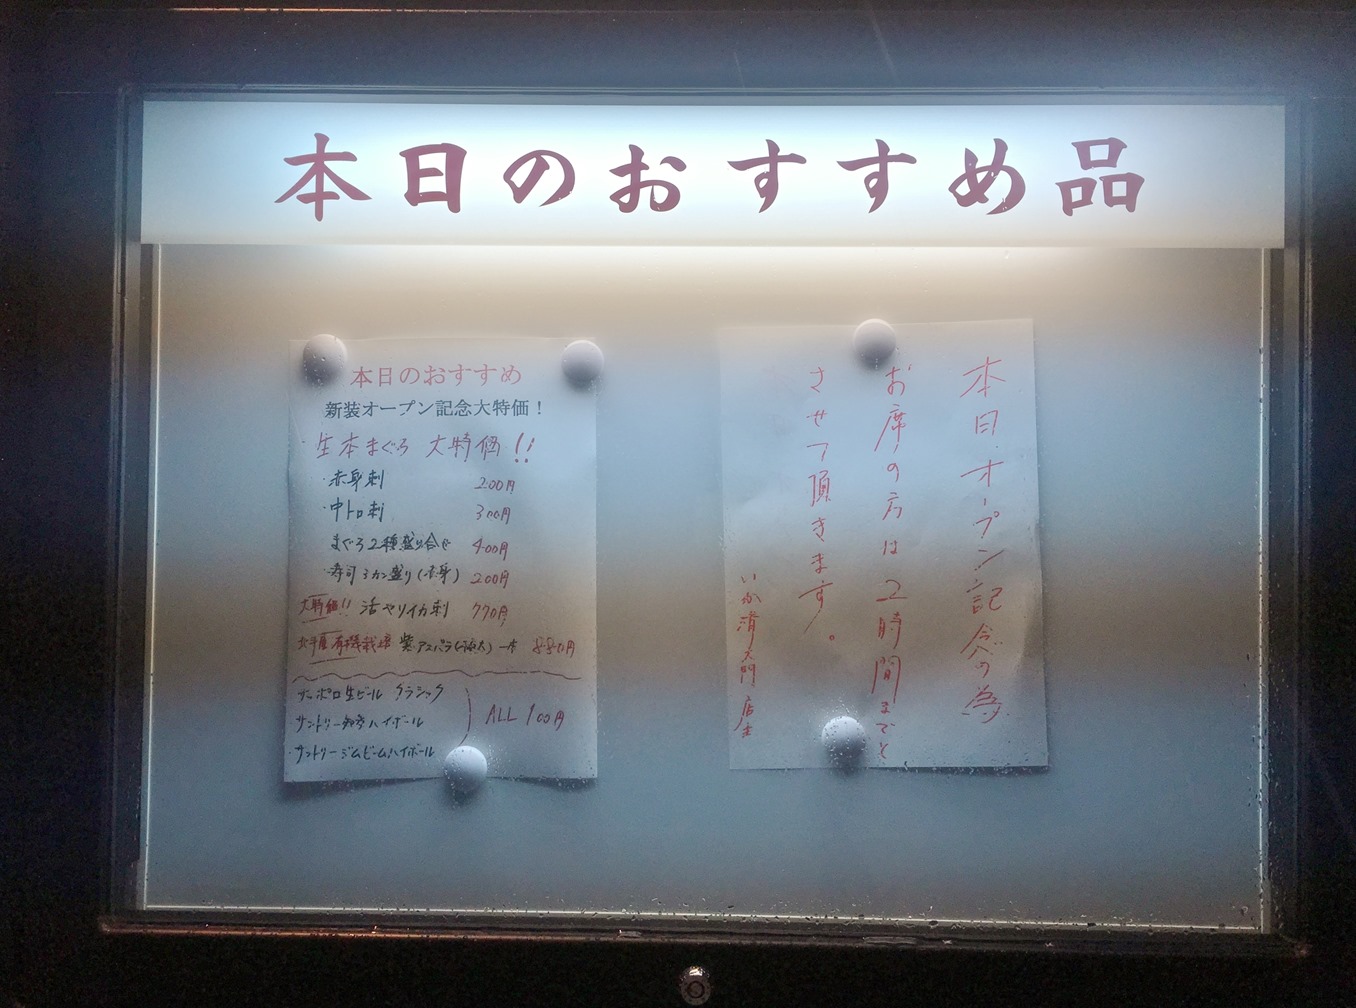 本日のおすすめ品
本日のおすすめ
新装オープン記念大特価！
生本まぐろ 大特価!!
・赤身刺 200円
・中トロ刺 300円
まぐろ2種盛り合せ 400円
・寿司3カン盛り(赤身) 200円
大特価!! 活ヤリイカ刺 770円
有機栽培 紫アスパラ 一本 880円
サッポロ生ビール クラシック
サントリー知多ハイボール ALL 100円
・サントリージムビームハイボール
本日オープン記念の為
お席の方は2時間までと
させて頂きます。
いか清大門 店主